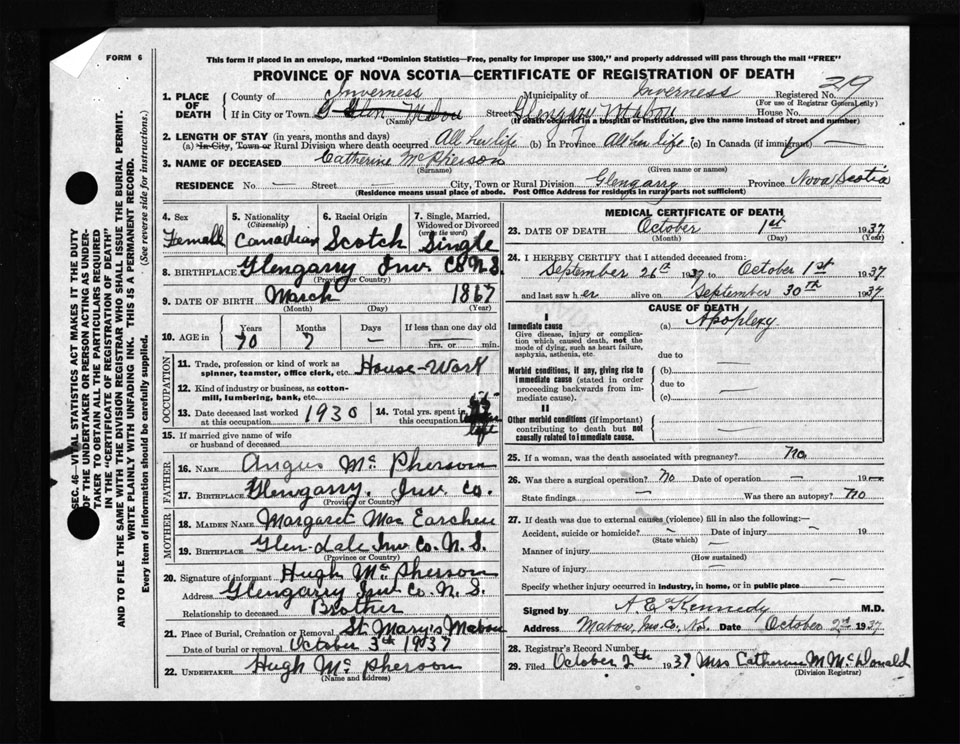 FORM 6
This form if placed in an envelope, marked "Dominion Statistics—Free, penalty for improper use $300," and properly addressed will pass through the mail "FREE"
PROVINCE OF NOVA SCOTIA—CERTIFICATE OF REGISTRATION OF DEATH
1. PLACE OF DEATH
County of Inverness Municipality of Inverness Registered No. 319
(For use of Registrar General only)
If in City or Town Glen Mabou (Name) Street Glengary Mabou House No.
(If death occurred in a hospital or institution, give the name instead of street and number)
2. LENGTH OF STAY (in years, months and days)
(a) In City, Town or Rural Division where death occurred All her life (b) In Province All her life (c) In Canada (if immigrant)
3. NAME OF DECEASED Catherine McPherson
(Surname) (Given name or names)
RESIDENCE No. — Street — City, Town or Rural Division Glengarry Province Nova Scotia
(Residence means usual place of abode. Post Office Address for residents in rural parts not sufficient)
4. Sex Femall
5. Nationality (Citizenship) Canadian
6. Racial Origin Scotch
7. Single, Married, Widowed or Divorced (write the word) Single
8. BIRTHPLACE Glengarry Inv. Co N.S.
(Province or Country)
9. DATE OF BIRTH March 1867
(Month) (Day) (Year)
10. AGE in Years 70 Months 7 Days — If less than one day old hrs. or min.
OCCUPATION
11. Trade, profession or kind of work as spinner, teamster, office clerk, etc. House-Work
12. Kind of industry or business, as cotton-mill, lumbering, bank, etc.
13. Date deceased last worked at this occupation 1930
14. Total yrs. spent in this occupation
15. If married give name of wife or husband of deceased
FATHER
16. NAME Angus McPherson
17. BIRTHPLACE Glengarry, Inv. Co.
(Province or Country)
MOTHER
18. MAIDEN NAME Margaret Mac Eachen
19. BIRTHPLACE Glen-dale Inv Co. N. S.
(Province or Country)
20. Signature of informant Hugh McPherson
Address Glengarry Inv Co. N. S.
Relationship to deceased Brother
21. Place of Burial, Cremation or Removal St. Mary's Mabou
Date of burial or removal October 3th 1937
22. UNDERTAKER Hugh McPherson
(Name and Address)
MEDICAL CERTIFICATE OF DEATH
23. DATE OF DEATH October 1st 1937
(Month) (Day) (Year)
24. I HEREBY CERTIFY that I attended deceased from:
September 26th 1937 to October 1st 1937
and last saw her alive on September 30th 1937
CAUSE OF DEATH
I
Immediate cause
Give disease, injury or complication which caused death, not the mode of dying, such as heart failure, asphyxia, asthenia, etc.
(a) Apoplexy
due to —
Morbid conditions, if any, giving rise to immediate cause (stated in order proceeding backwards from immediate cause).
(b)
due to —
(c)
II
Other morbid conditions (if important) contributing to death but not causally related to immediate cause.
25. If a woman, was the death associated with pregnancy? No
26. Was there a surgical operation? No Date of operation — 19
State findings — Was there an autopsy? No
27. If death was due to external causes (violence) fill in also the following:—
Accident, suicide or homicide? — Date of injury — 19
(State which)
Manner of injury —
(How sustained)
Nature of injury —
Specify whether injury occurred in industry, in home, or in public place —
Signed by A E Kennedy M.D.
Address Mabou, Inv. Co., N.S. Date October 2nd 1937
28. Registrar's Record Number
29. Filed October 2th 1937 Mrs Catherine M McDonald
(Division Registrar)
SEC. 46—VITAL STATISTICS ACT MAKES IT THE DUTY
OF THE UNDERTAKER OR PERSON ACTING AS UNDER-
TAKER TO OBTAIN ALL THE PARTICULARS REQUIRED
IN THE "CERTIFICATE OF REGISTRATION OF DEATH"
AND TO FILE THE SAME WITH THE DIVISION REGISTRAR WHO SHALL ISSUE THE BURIAL PERMIT.
WRITE PLAINLY WITH UNFADING INK. THIS IS A PERMANENT RECORD.
Every item of information should be carefully supplied. (See reverse side for instructions.)